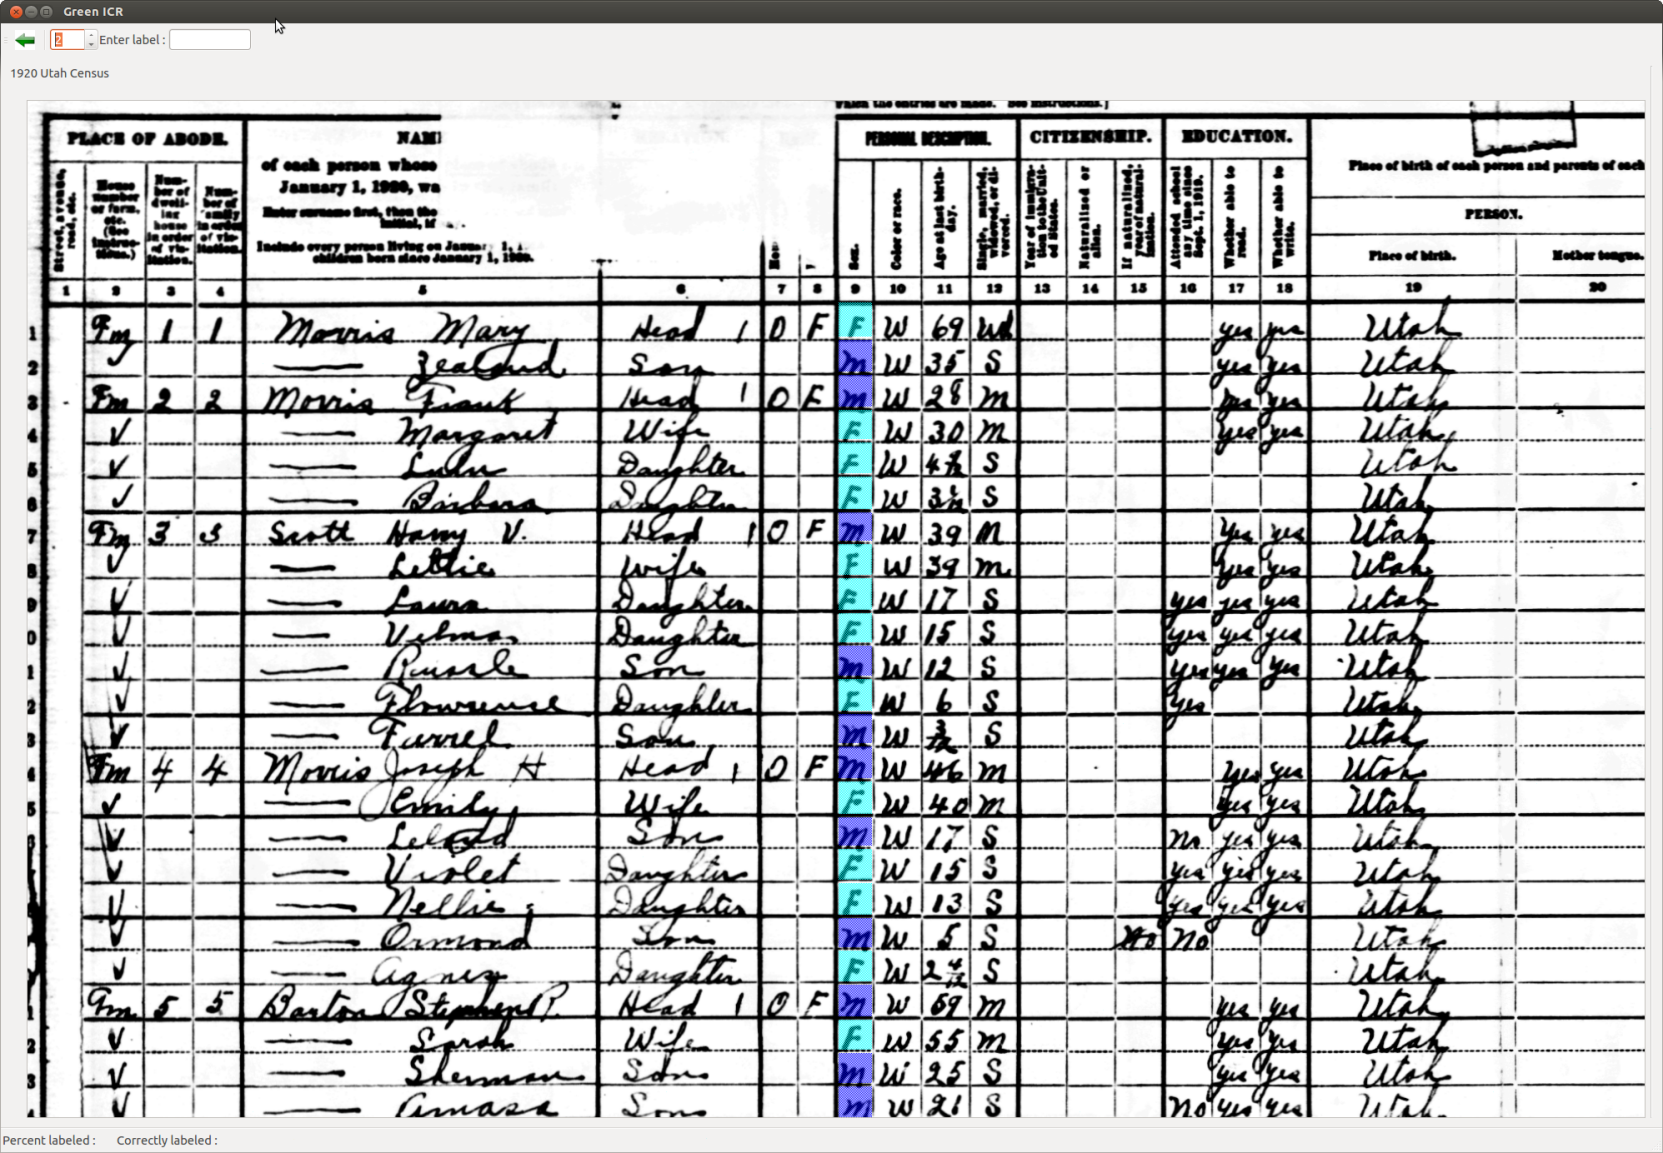 Green ICR
2 Enter label :
1920 Utah Census
which the entries are made. See instructions.]
PLACE OF ABODE. NAM PERSONAL DESCRIPTION. CITIZENSHIP. EDUCATION.
of each person whose Place of birth of each person and parents of each
January 1, 1920, wa
Enter surname first, then the PERSON.
initial, if
Include every person living on January 1, 1
children born since January 1, 1920.
Street, avenue, road, etc.
House number or farm, etc. (See instructions.)
Number of dwelling house in order of visitation.
Number of family in order of visitation.
Sex.
Color or race.
Age at last birthday.
Single, married, widowed, or divorced.
Year of immigration to the United States.
Naturalized or alien.
If naturalized, year of naturalization.
Attended school any time since Sept. 1, 1919.
Whether able to read.
Whether able to write.
Place of birth. Mother tongue.
1 2 3 4 5 6 7 8 9 10 11 12 13 14 15 16 17 18 19 20
1 Fm 1 1 Morris Mary Head 1 O F F W 69 Wd yes yes Utah
2 Zealand Son M W 35 S yes yes Utah
3 Fm 2 2 Morris Frank Head 1 O F M W 28 M yes yes Utah
4 Margaret Wife F W 30 M yes yes Utah
5 Lulu Daughter F W S Utah
6 Barbara Daughter F W S Utah
7 Fm 3 3 Scott Harry V. Head 1 O F M W 39 M Yes yes Utah
8 Lettie Wife F W 39 M yes yes Utah
9 Laura Daughter F W 17 S yes yes yes Utah
0 Velma Daughter F W 15 S yes yes yes Utah
1 Russle Son M W 12 S yes yes yes Utah
2 Flowrence Daughter F W 6 S yes Utah
3 Furrel Son M W S Utah
4 Fm 4 4 Morris Joseph H Head 1 O F M W 46 M yes yes Utah
5 Emily Wife F W 40 M yes yes Utah
6 Leland Son M W 17 S No yes yes Utah
Violet Daughter F W 15 S yes yes yes Utah
Nellie Daughter F W 13 S yes yes yes Utah
Ormond Son M W 5 S No No Utah
Agnes Daughter F W 2 4/12 S Utah
1 Fm 5 5 Barton Stephen P. Head 1 O F M W 59 M yes yes Utah
2 Sarah Wife F W 55 M yes yes Utah
3 Sherman Son M W 25 S yes yes Utah
Amasa Son M W 21 S No yes yes Utah
Percent labeled : Correctly labeled :